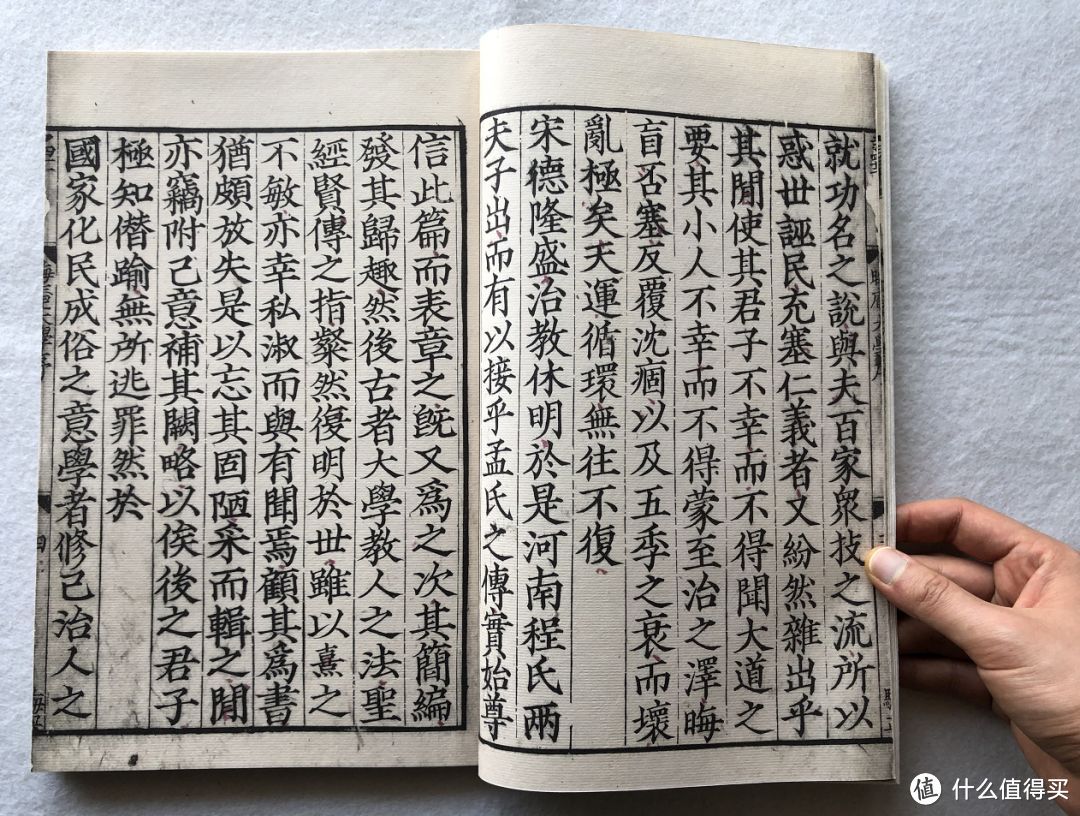 就功名之說與夫百家衆技之流所以
惑世誣民充塞仁義者又紛然雜出乎
其閒使其君子不幸而不得聞大道之
要其小人不幸而不得蒙至治之澤晦
盲否塞反覆沈痼以及五季之衰而壞
亂極矣天運循環無往不復
宋德隆盛治教休明於是河南程氏兩
夫子出而有以接乎孟氏之傳實始尊
信此篇而表章之旣又爲之次其簡編
發其歸趣然後古者大學教人之法聖
經賢傳之指粲然復明於世雖以熹之
不敏亦幸私淑而與有聞焉顧其爲書
猶頗放失是以忘其固陋采而輯之閒
亦竊附己意補其闕略以俟後之君子
極知僭踰無所逃罪然於
國家化民成俗之意學者修己治人之
四
值 什么值得买